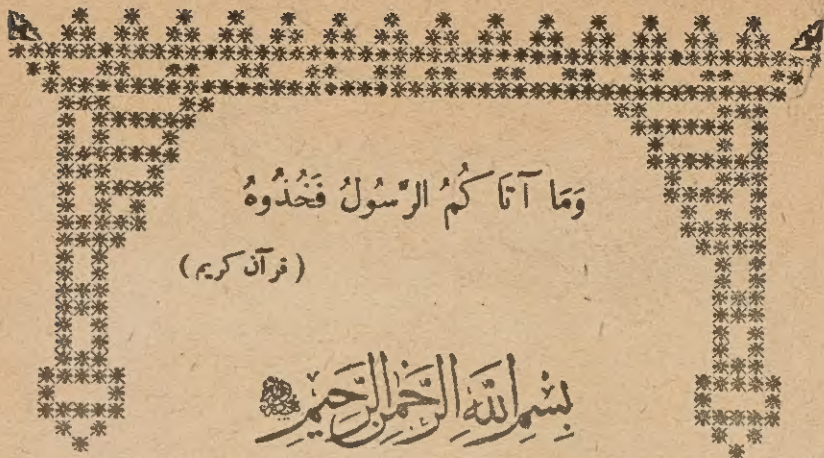 وَمَا آتَا كُمُ الرَّسُولُ فَخُذُوهُ
(قرآن كريم)
بِسْمِ اللَّهِ الرَّحْمٰنِ الرَّحِيمِ